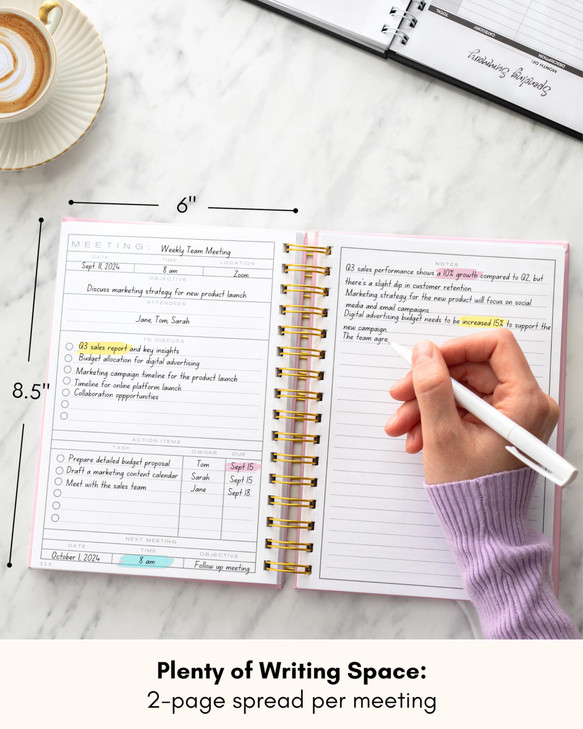 TOTAL
CATEGORY
DESCRIPTION
MONTH OF:
Spending Summary
6"
8.5"
MEETING: Weekly Team Meeting
DATE TIME LOCATION
Sept. 11, 2024 8 am Zoom
OBJECTIVE
Discuss marketing strategy for new product launch
ATTENDEES
Jane, Tom, Sarah
TO DISCUSS
Q3 sales report and key insights
Budget allocation for digital advertising
Marketing campaign timeline for the product launch
Timeline for online platform launch
Collaboration oppportunities
ACTION ITEMS
TASK OWNER DUE
Prepare detailed budget proposal Tom Sept 15
Draft a marketing content calendar Sarah Sept 15
Meet with the sales team Jane Sept 18
NEXT MEETING
DATE TIME OBJECTIVE
October 1, 2024 8 am Follow up meeting
NOTES
Q3 sales performance shows a 10% growth compared to Q2, but
there's a slight dip in customer retention.
Marketing strategy for the new product will focus on social
media and email campaigns.
Digital advertising budget needs to be increased 15% to support the
new campaign.
The team agre
Plenty of Writing Space:
2-page spread per meeting